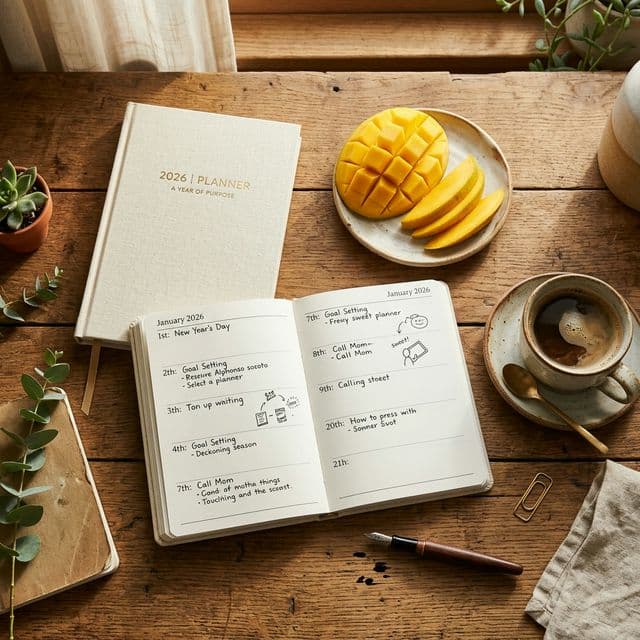 2026 | PLANNER
A YEAR OF PURPOSE
January 2026
1st: New Year's Day
2th: Goal Setting
- Reserve Alphonso socoto
- Select a planner
3th: Ton up waiting
4th: Goal Setting
- Deckoning season
7th: Call Mom
- Cond: of motha things
- Touchling and the scoast.
January 2026
7th: Goal Setting
- Frewy sweet planner
8th: Call Mom-
- Call Mom
sweet!
9th: Calling steet
20th: How to press with
- Somner Svot
21h: